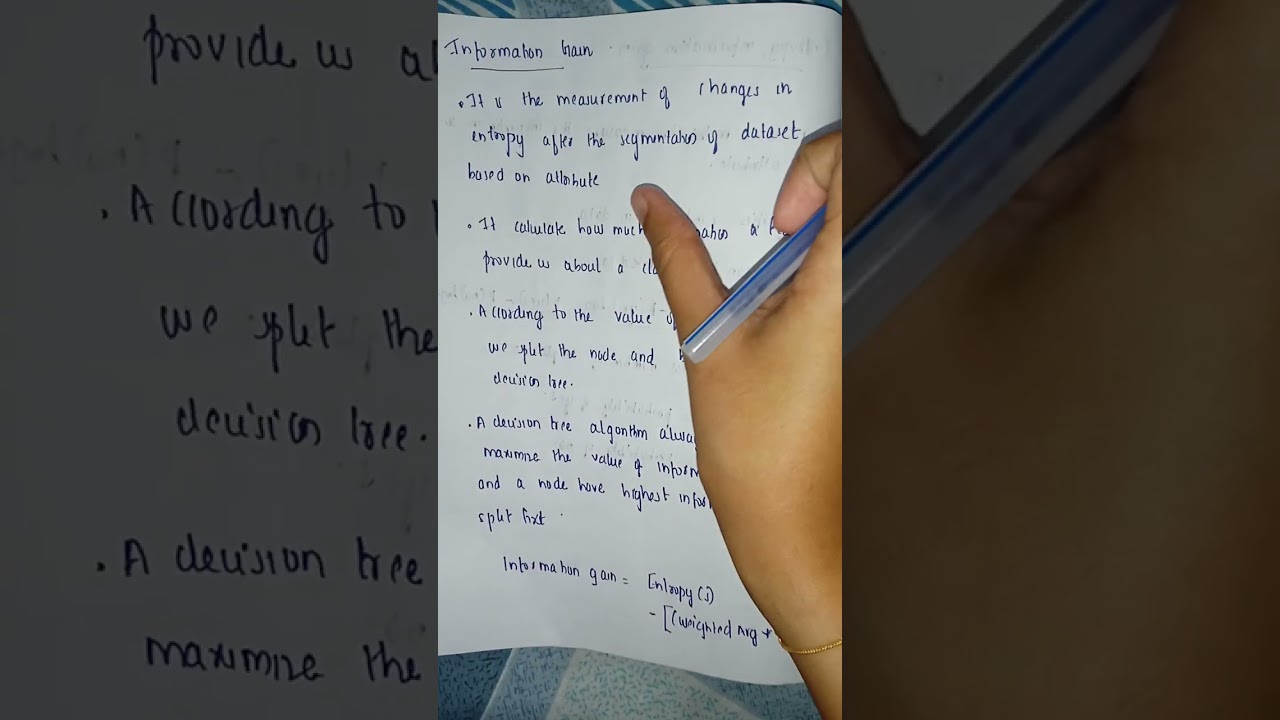 Information Gain
. It is the measurement of changes in
entropy after the segmentation of dataset
based on attribute
. It calculate how much a
provide us about a
. According to the value
we split the node and
decision tree.
. A decision tree algorithm
maximize the value of
and a node have highest
split first
Information gain = Entropy(S)
- [(Weighted Avg *
provide us
. According to
we split the
decision tree.
. A decision tree
maximize the